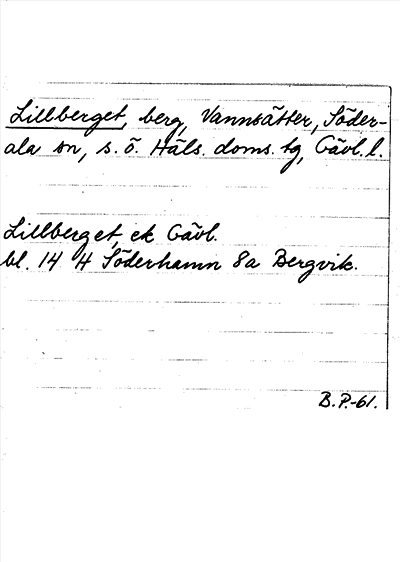 Lillberget, berg, Vannsätter, Söder-
ala sn, s. ö. Häls. doms. tg, Gävl. l.
Lillberget, ek Gävl.
bl. 14 H Söderhamn 8a Bergvik.
B.P.-61.